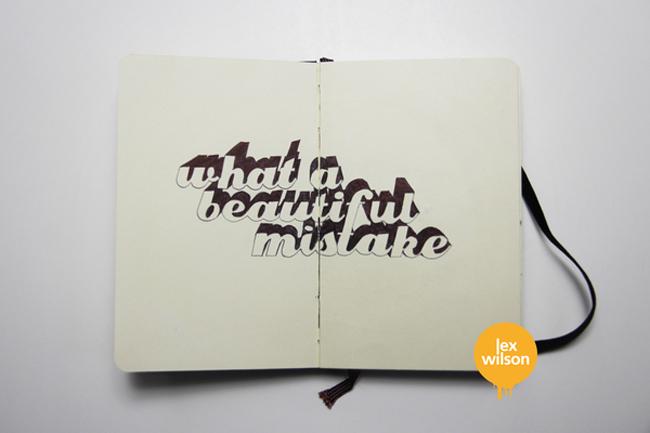 what a
beautiful
mistake
lex
wilson